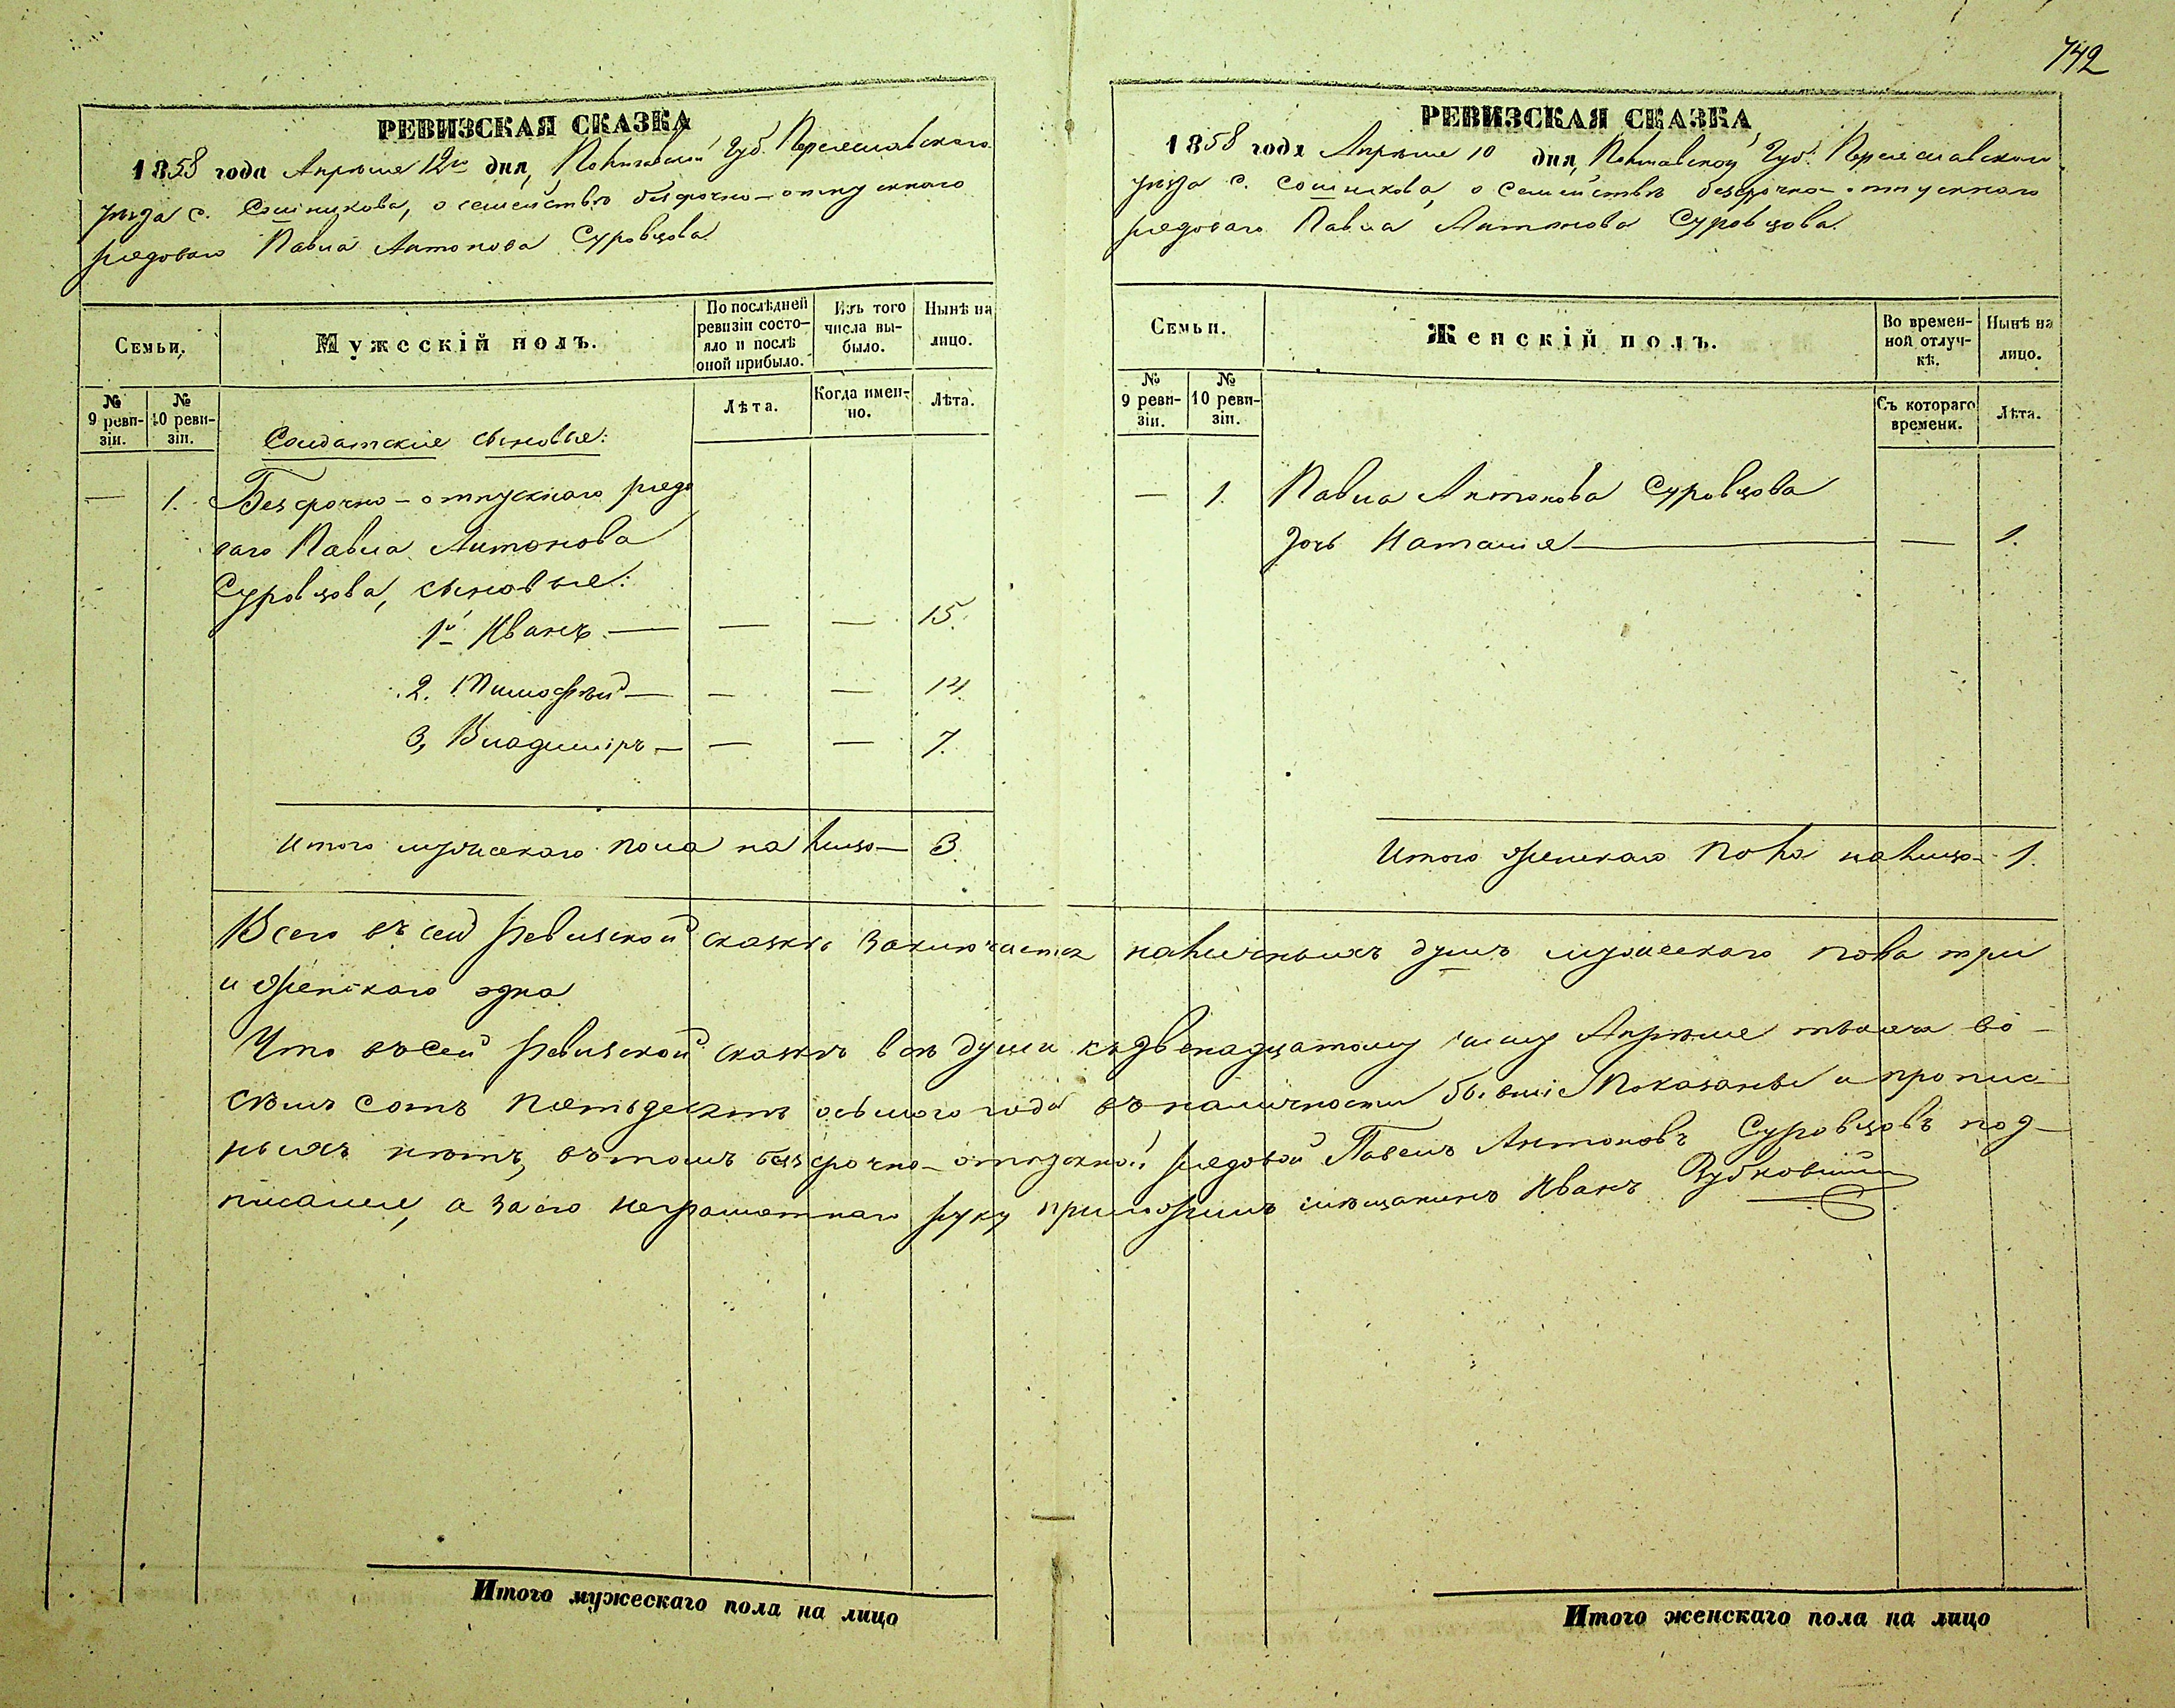 742
РЕВИЗСКАЯ СКАЗКА
1858 года Апрѣля 12го дня, Полтавской Губ. Переяславскаго
уѣзда с. Сошникова, о семействѣ безсрочно-отпускнаго
рядоваго Павла Антонова Суровцова
Семьи.
Мужескій полъ.
По послѣдней ревизіи состояло и послѣ оной прибыло.
Изъ того числа выбыло.
Нынѣ на лицо.
№ 9 ревизіи.
№ 10 ревизіи.
Лѣта.
Когда именно.
Лѣта.
Солдатскіе сыновья:
— 1. Безсрочно-отпускнаго рядо
ваго Павла Антонова
Суровцова, сыновья:
1й Иванъ — — — 15.
2. Тимофѣй — — — 14.
3, Владиміръ — — — 7.
Итого мужескаго пола на лицо — 3.
РЕВИЗСКАЯ СКАЗКА
1858 года Апрѣля 10 дня, Полтавской Губ. Переяславскаго
уѣзда с. Сошникова, о семействѣ безсрочно-отпускнаго
рядоваго Павла Антонова Суровцова.
Семьи.
Женскій полъ.
Во временной отлучкѣ.
Нынѣ на лицо.
№ 9 ревизіи.
№ 10 ревизіи.
Съ котораго времени.
Лѣта.
— 1. Павла Антонова Суровцова
дочь Наталія — — 1.
Итого женскаго пола на лицо — 1.
Всего въ сей ревизской сказкѣ заключается наличныхъ душъ мужескаго пола три
и женскаго одна
Что въ сей ревизской сказкѣ всѣ души къ двенадцатому числу Апрѣля тысяча во-
семь сотъ пятьдесятъ осьмого года въ наличности бывшіе показаны и пропис-
ныхъ нѣтъ, въ томъ безсрочно-отпускной рядовой Павелъ Антоновъ Суровцовъ под-
писался, а за его неграмотнаго руку приложилъ мѣщанинъ Иванъ
Итого мужескаго пола на лицо
Итого женскаго пола на лицо